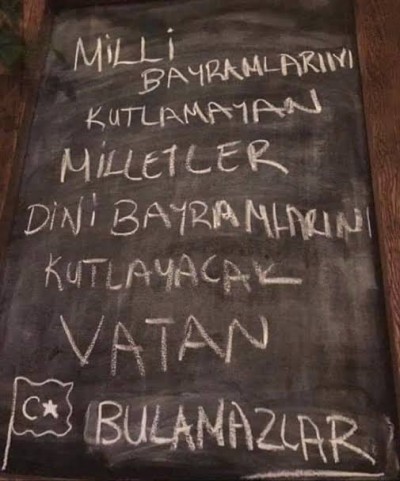 MİLLİ
BAYRAMLARINI
KUTLAMAYAN
MİLLETLER
DİNİ BAYRAMLARINI
KUTLAYACAK
VATAN
BULAMAZLAR